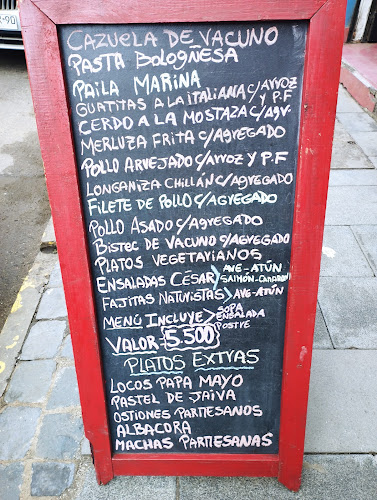 90
CAZUELA DE VACUNO
PASTA BOLOGÑESA
PAILA MARINA
GUATITAS A LA ITALIANA C/ARROZ Y P.F
CERDO A LA MOSTAZA C/AGR.
MERLUZA FRITA C/AGREGADO
POLLO ARVEJADO C/ARROZ Y P.F
LONGANIZA CHILLÁN C/AGREGADO
FILETE DE POLLO C/AGREGADO
POLLO ASADO C/AGREGADO
BISTEC DE VACUNO C/AGREGADO
PLATOS VEGETARIANOS
ENSALADAS CÉSAR > AVE-ATÚN SALMÓN-CAMARÓN
FAJITAS NATURISTAS > AVE-ATÚN
MENÚ INCLUYE > SOPA ENSALADA POSTRE
VALOR- 5.500
PLATOS EXTRAS
LOCOS PAPA MAYO
PASTEL DE JAIVA
OSTIONES PARMESANOS
ALBACORA
MACHAS PARMESANAS